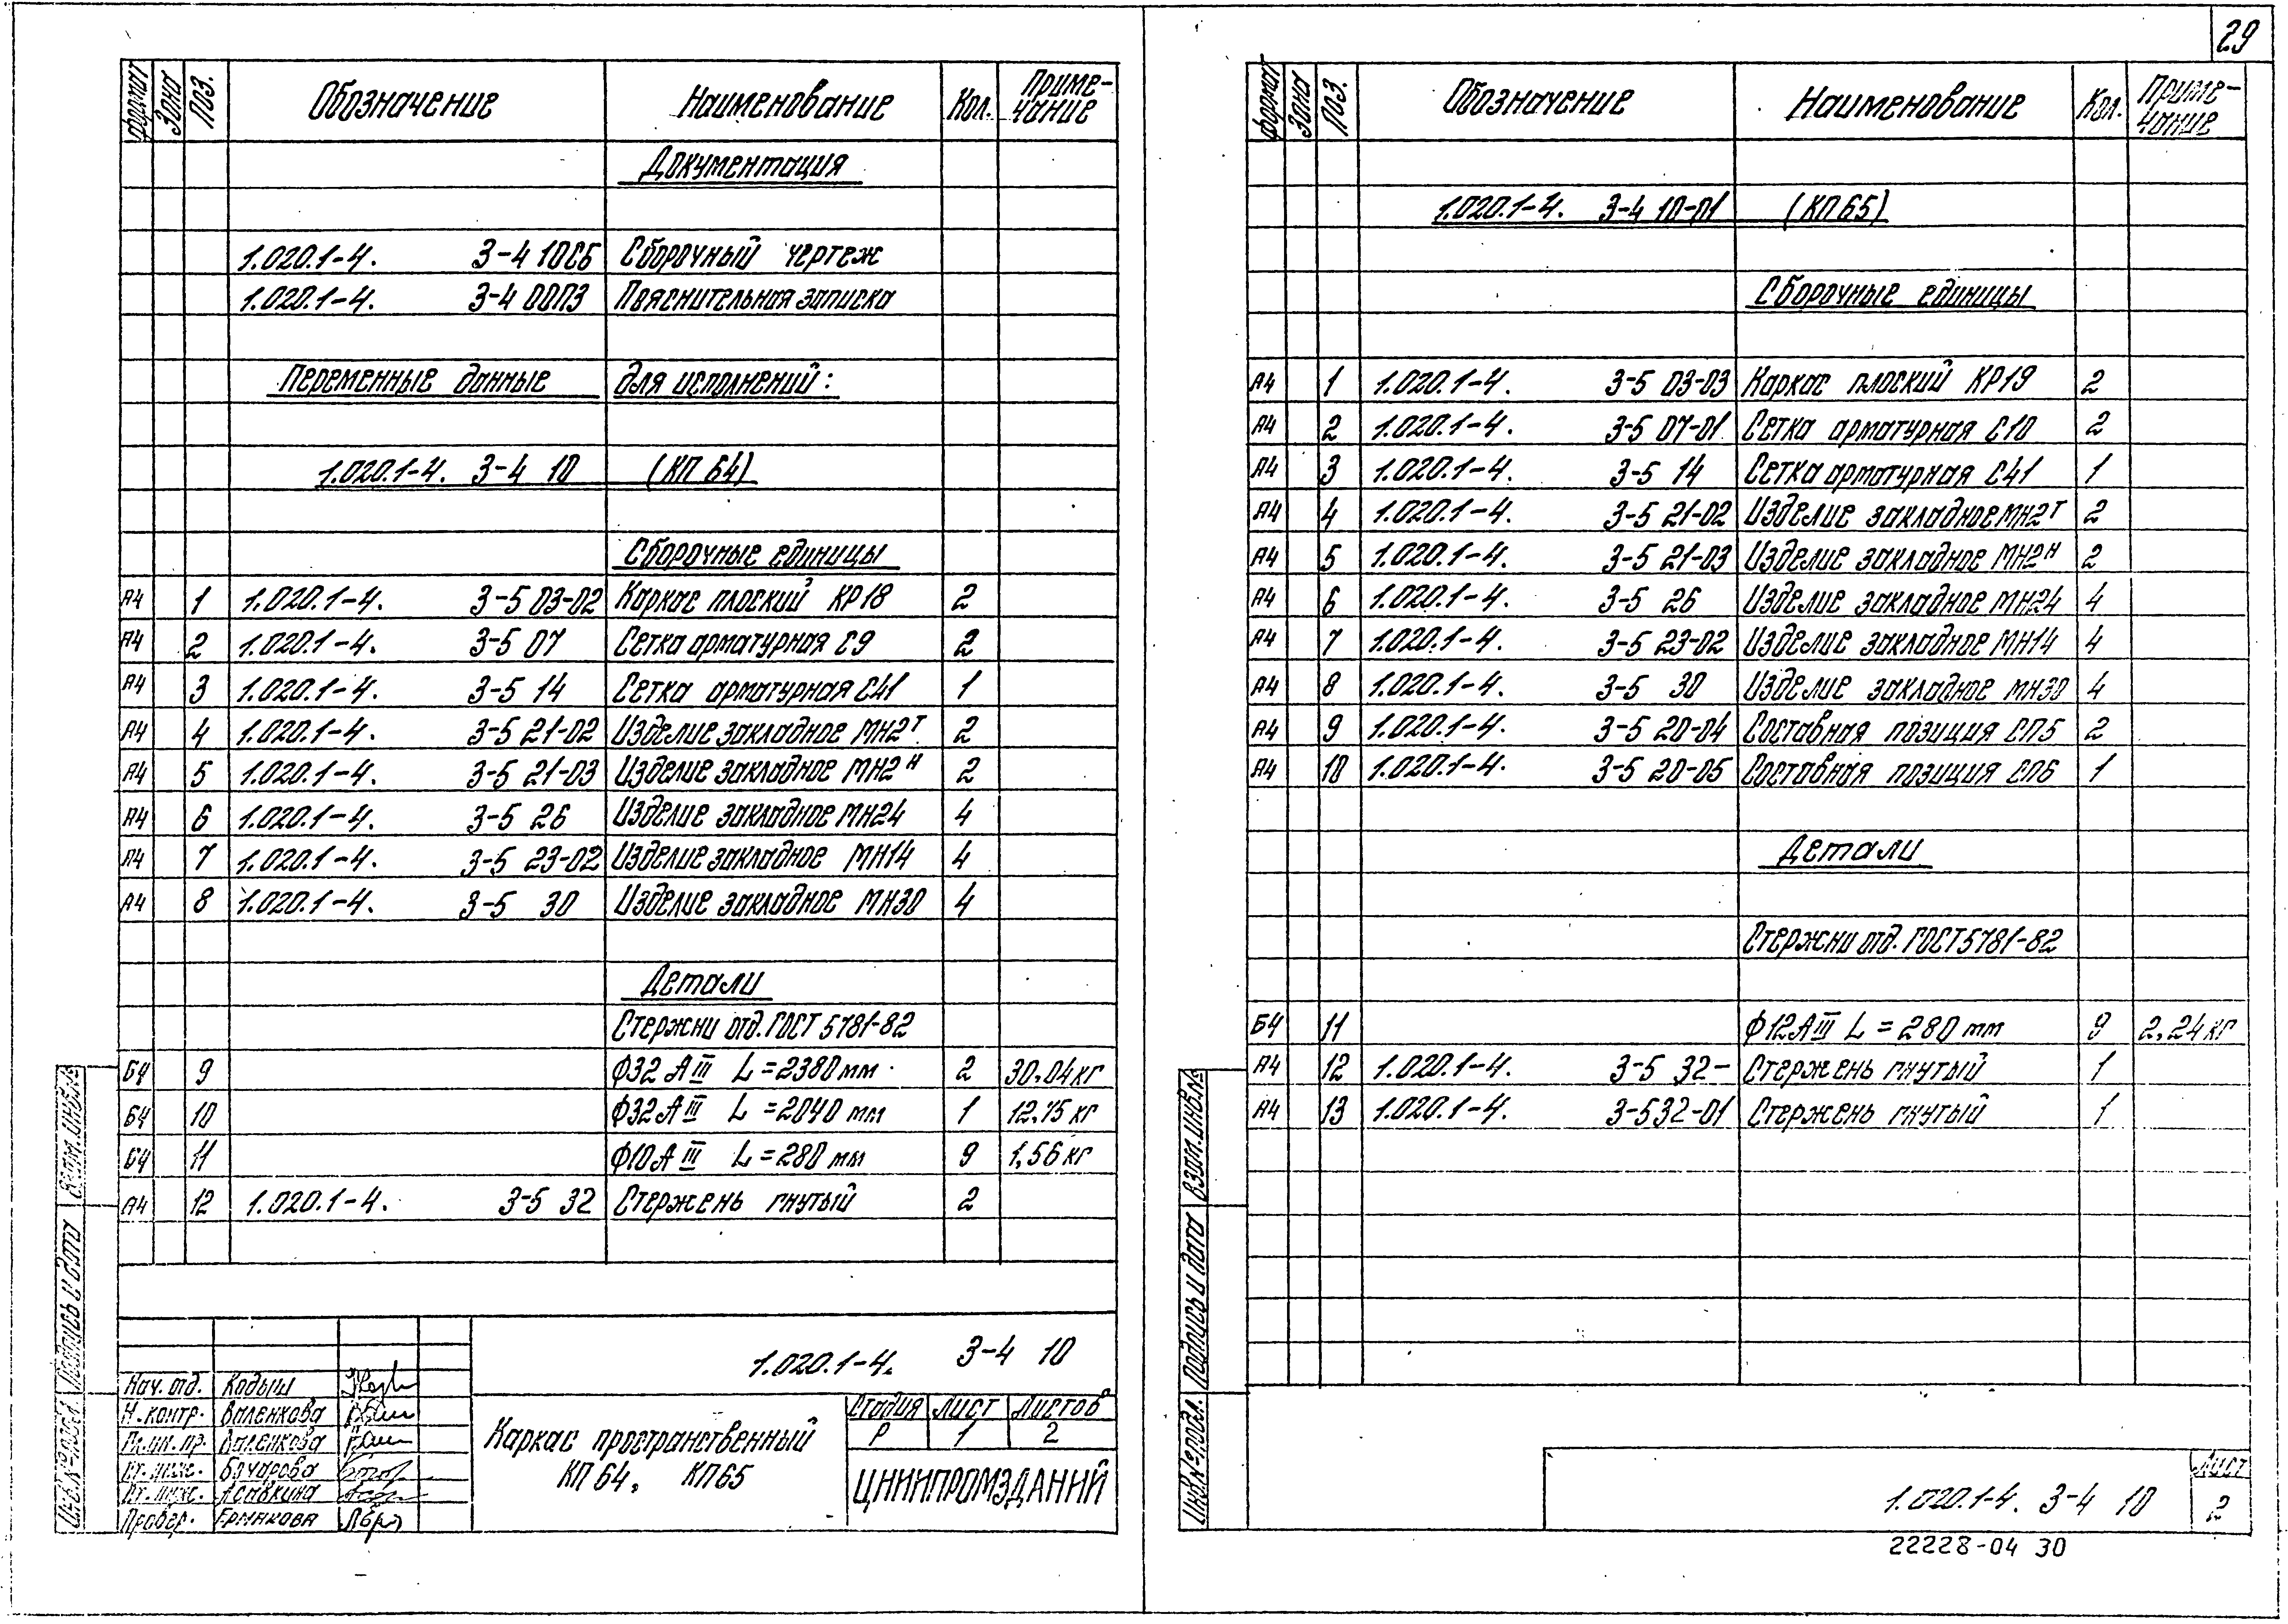 29
Формат Зона Поз. Обозначение Наименование Кол. Приме-
чание
Документация
1.020.1-4. 3-4 10СБ Сборочный чертеж
1.020.1-4. 3-4 00ПЗ Пояснительная записка
Переменные данные для исполнений:
1.020.1-4. 3-4 10 (КП 64)
Сборочные единицы
А4 1 1.020.1-4. 3-5 03-02 Каркас плоский КР18 2
А4 2 1.020.1-4. 3-5 07 Сетка арматурная С9 2
А4 3 1.020.1-4. 3-5 14 Сетка арматурная С41 1
А4 4 1.020.1-4. 3-5 21-02 Изделие закладное МН2т 2
А4 5 1.020.1-4. 3-5 21-03 Изделие закладное МН2н 2
А4 6 1.020.1-4. 3-5 26 Изделие закладное МН24 4
А4 7 1.020.1-4. 3-5 23-02 Изделие закладное МН14 4
А4 8 1.020.1-4. 3-5 30 Изделие закладное МН30 4
Детали
Стержни отд. ГОСТ 5781-82
Б4 9 Ф32 АIII L=2380мм 2 30,04кг
Б4 10 Ф32АIII L=2040 мм 1 12,75 кг
Б4 11 Ф10АIII L=280 мм 9 1,56 кг
А4 12 1.020.1-4. 3-5 32 Стержень гнутый 2
Инв.№подл. Подпись и дата Взам.инв.№
1.020.1-4. 3-4 10
Нач. отд. Кодыш
Н.контр. Валенкова
Гл.ин.пр. Валенкова
Ст.инж. Бочарова
Ст.инж. Аснвкина
Провер. Ермакова
Каркас пространственный
КП 64, КП65
Стадия Лист Листов
Р 1 2
ЦНИИПРОМЗДАНИЙ
Формат Зона Поз. Обозначение Наименование Кол. Приме-
чание
1.020.1-4. 3-4 10-01 (КП65)
Сборочные единицы
А4 1 1.020.1-4. 3-5 03-03 Каркас плоский КР19 2
А4 2 1.020.1-4. 3-5 07-01 Сетка арматурная С10 2
А4 3 1.020.1-4. 3-5 14 Сетка арматурная С41 1
А4 4 1.020.1-4. 3-5 21-02 Изделие закладное МН2т 2
А4 5 1.020.1-4. 3-5 21-03 Изделие закладное МН2н 2
А4 6 1.020.1-4. 3-5 26 Изделие закладное МН24 4
А4 7 1.020.1-4. 3-5 23-02 Изделие закладное МН14 4
А4 8 1.020.1-4. 3-5 30 Изделие закладное МН30 4
А4 9 1.020.1-4. 3-5 20-04 Составная позиция СП5 2
А4 10 1.020.1-4. 3-5 20-05 Составная позиция СП6 1
Детали
Стержни отд. ГОСТ 5781-82
Б4 11 Ф12АIII L=280 мм 9 2,24кг
А4 12 1.020.1-4. 3-5 32- Стержень гнутый 1
А4 13 1.020.1-4. 3-532-01 Стержень гнутый 1
Инв.№подл. Подпись и дата Взам.инв.№
1.020.1-4. 3-4 10
Лист
2
22228-04 30